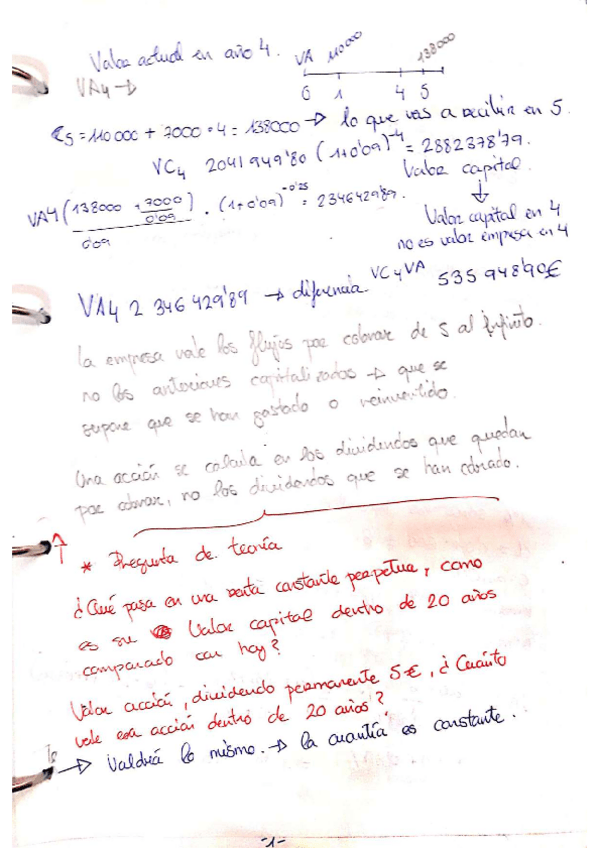 Valor actual en año 4. VA 110000 138000
VA4 → 0 1 4 5
C5 = 110 000 + 7000 · 4 = 138000 → lo que vas a recibir en 5.
VC4 2041 949'80 (1+0'09)^-4 = 2882378'79.
Valor capital
VA4 (138000 + 7000/0'09)/0'09 · (1+0'09)^-0'25 = 234642989.
Valor capital en 4
no es valor empresa en 4
VA4 2 346 429'89 → diferencia VC4 VA 535 948'90€
La empresa vale los flujos por cobrar de 5 al infinito.
no los anteriores capitalizados → que se
supone que se han gastado o reinvertido.
Una acción se calcula en los dividendos que quedan
por cobrar, no los dividendos que se han cobrado.
* Pregunta de teoría
¿Qué pasa en una renta constante perpetua, como
es su Valor capital dentro de 20 años
comparado con hoy?
Valor acción, dividendo permanente 5€, ¿Cuánto
vale esa acción dentro de 20 años?
→ Valdrá lo mismo. → la cuantía es constante.
-1-